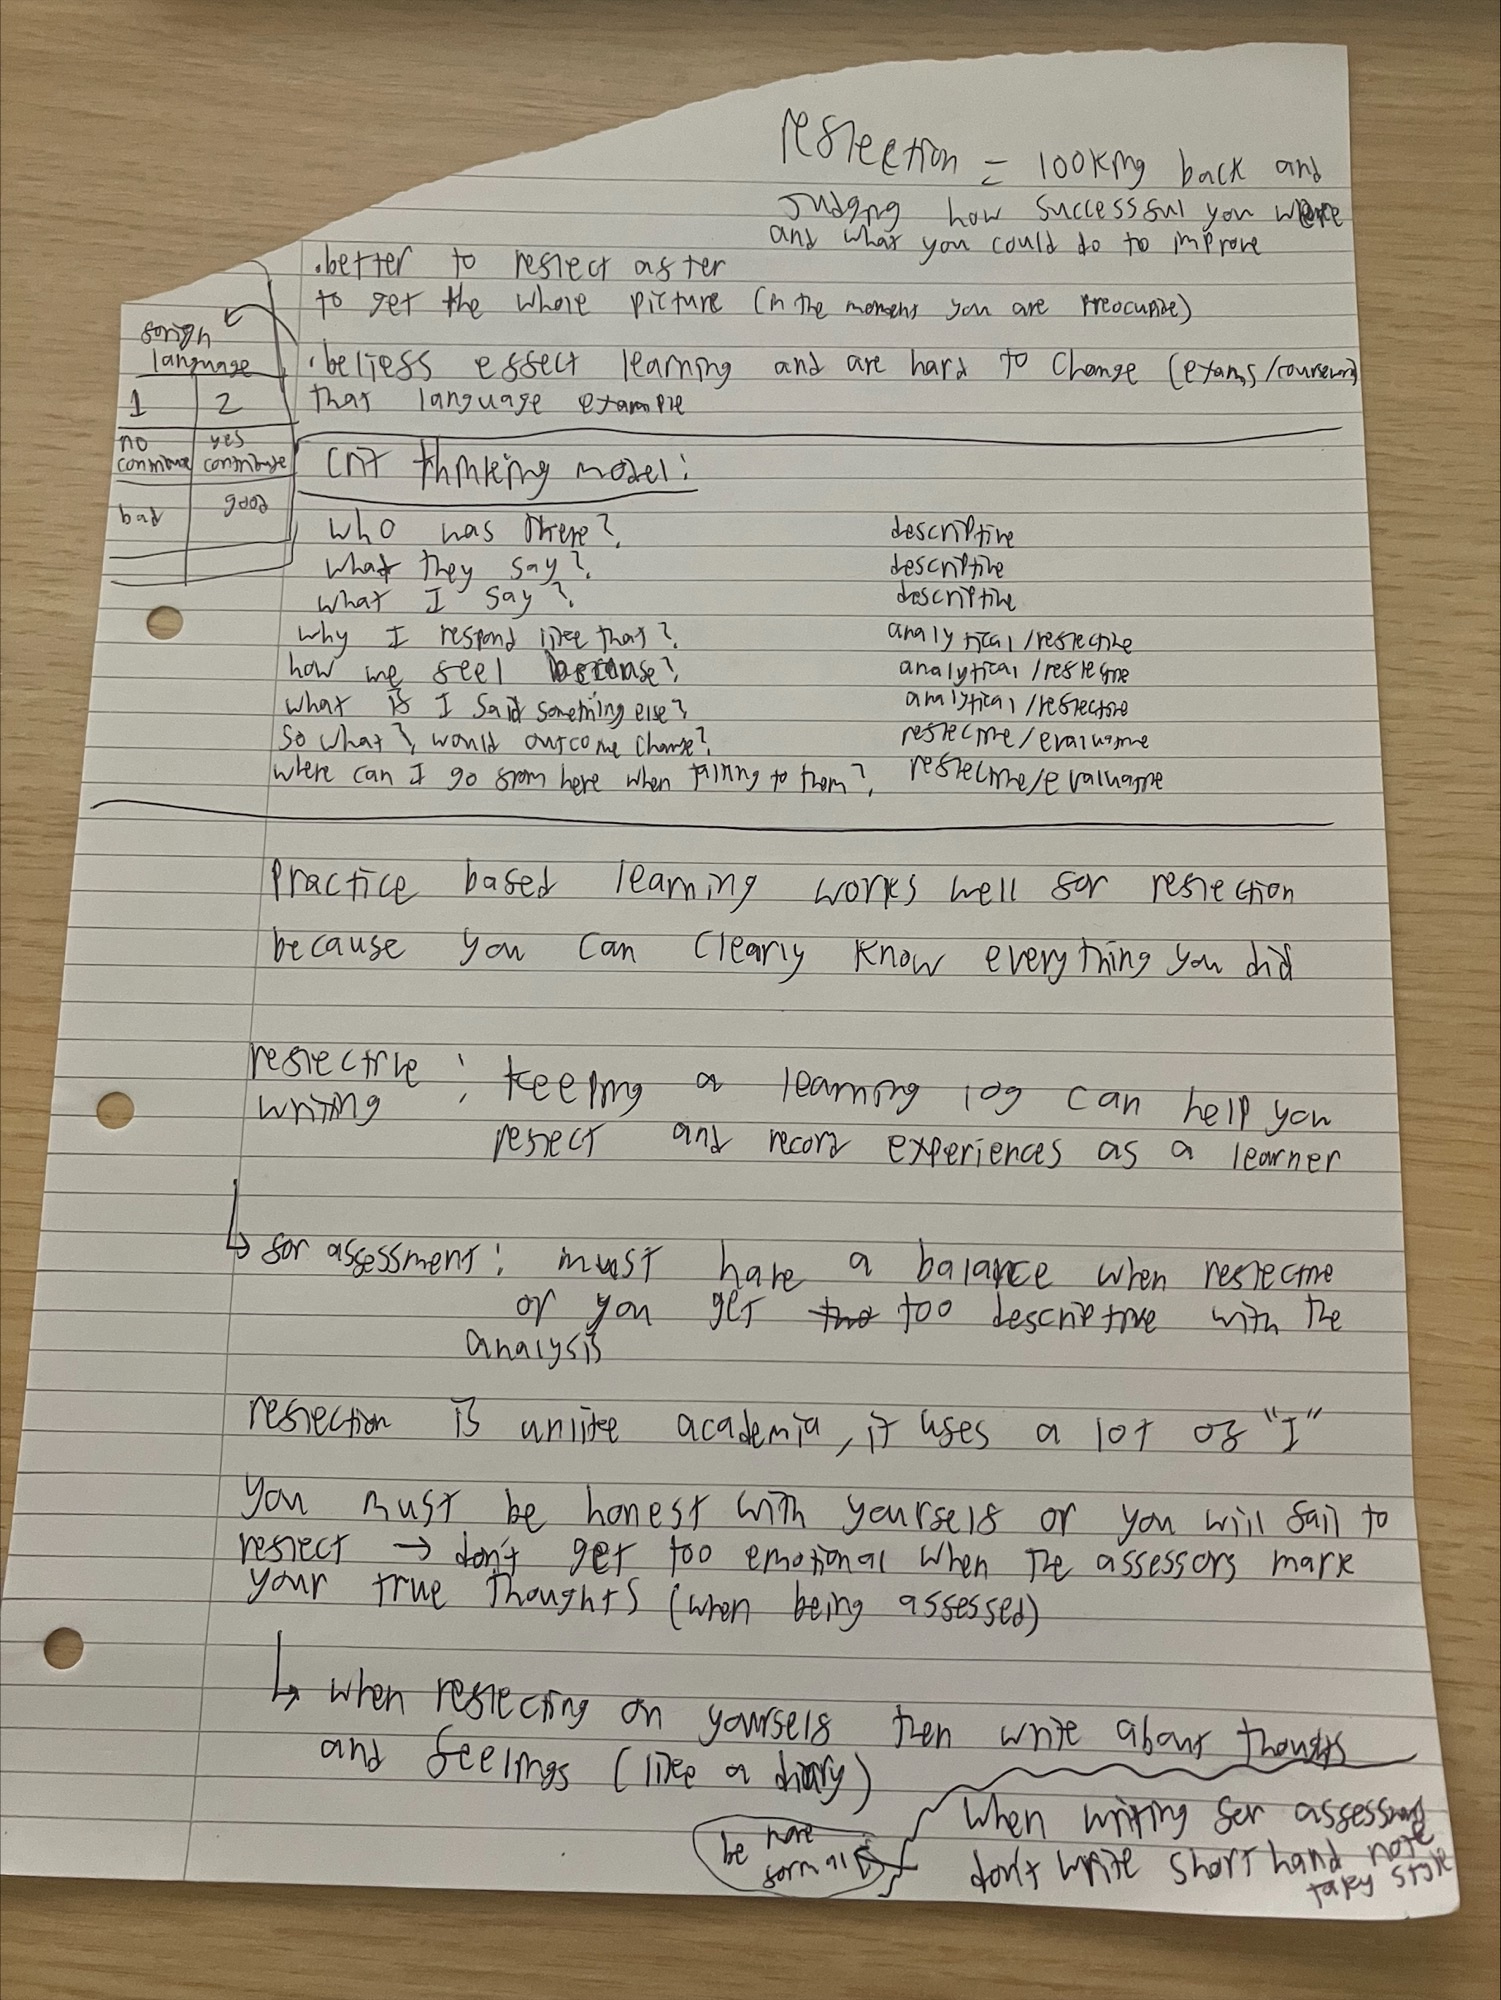 reflection = looking back and
Judging how successful you where
and what you could do to improve
.better to reflect after
to get the whole picture (in the moment you are preocupide)
.beliefs effect learning and are hard to change (exams/coursework)
that language example
forign
language
1 2
no yes
contribute contribute
bad good
crit thinking model:
who was there? descriptive
what they say? descriptive
what I say? descriptive
why I respond like that? analytical/reflective
how we feel because? analytical/reflective
what if I said something else? analytical/reflective
So what? would outcome change? reflective/evaluative
where can I go from here when talking to them? reflective/evaluative
Practice based learning works well for reflection
because you can clearly know everything you did
reflective writing : keeping a learning log can help you
reflect and record experiences as a learner
↳ for assessment: must have a balance when reflective
or you get too descriptive with the
analysis
reflection is unlike academia, it uses a lot of "I"
you must be honest with yourself or you will fail to
reflect → don't get too emotional when the assessors mark
your true thoughts (when being assessed)
↳ when reflecting on yourself then write about thoughts
and feelings (like a diary)
when writing for assessment
don't write short hand note
taky style
be more
formal